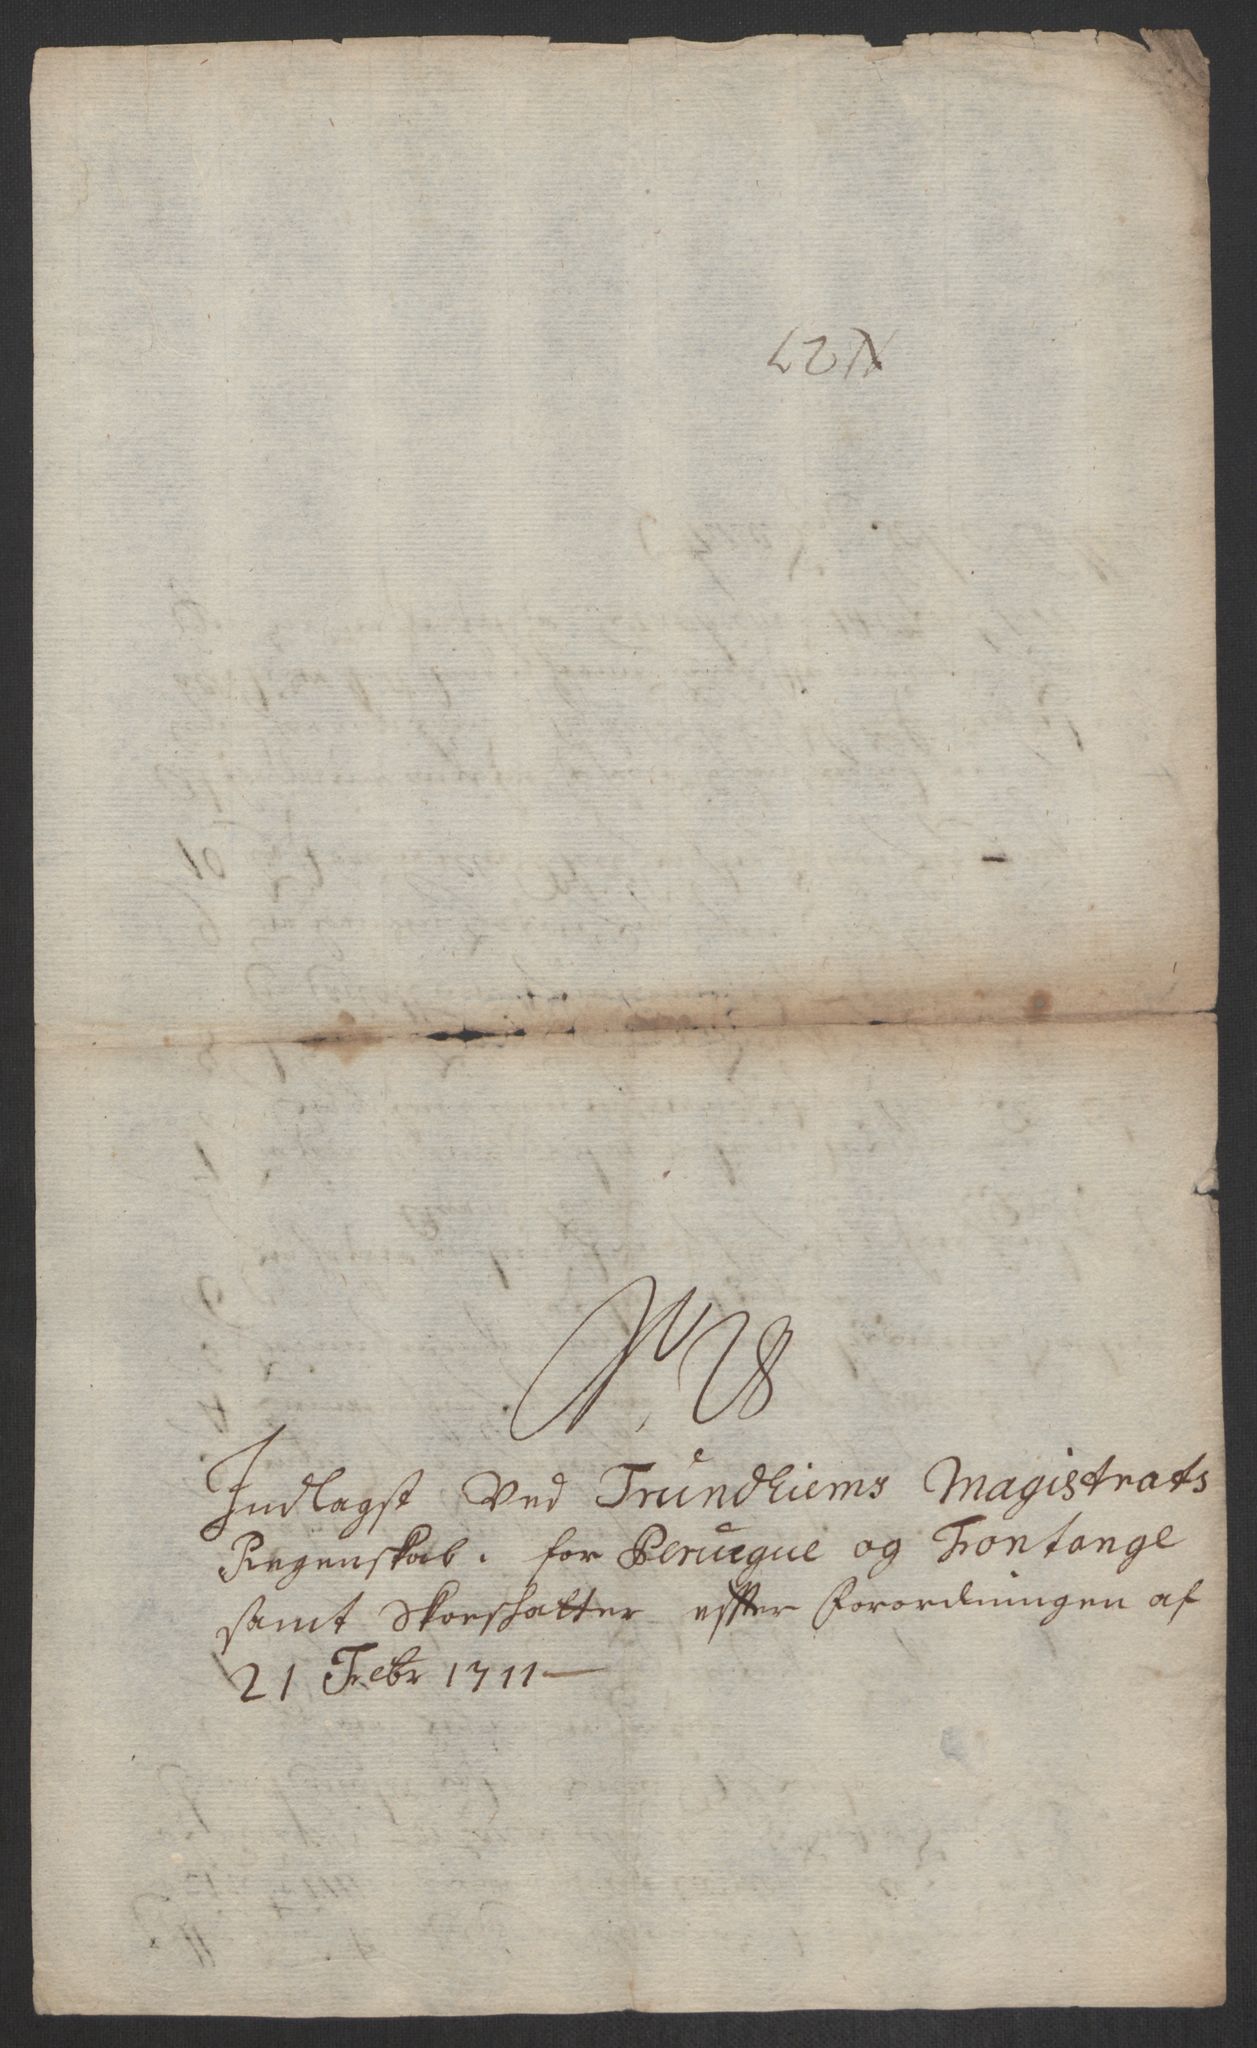 N 27
No, 28
Indlagst Ved Trundhiems Magistrats
Regenskab. for Peruque og Frontange
samt Skoeskatter effter Forordningen af
21 Febr 1711